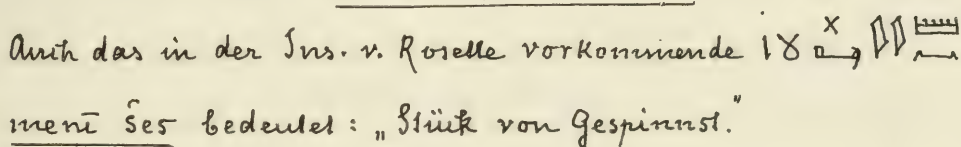 Auch das in der Ins. v. Rosette vorkommende
menī šes bedeutet: „Stük von Gespinnst."